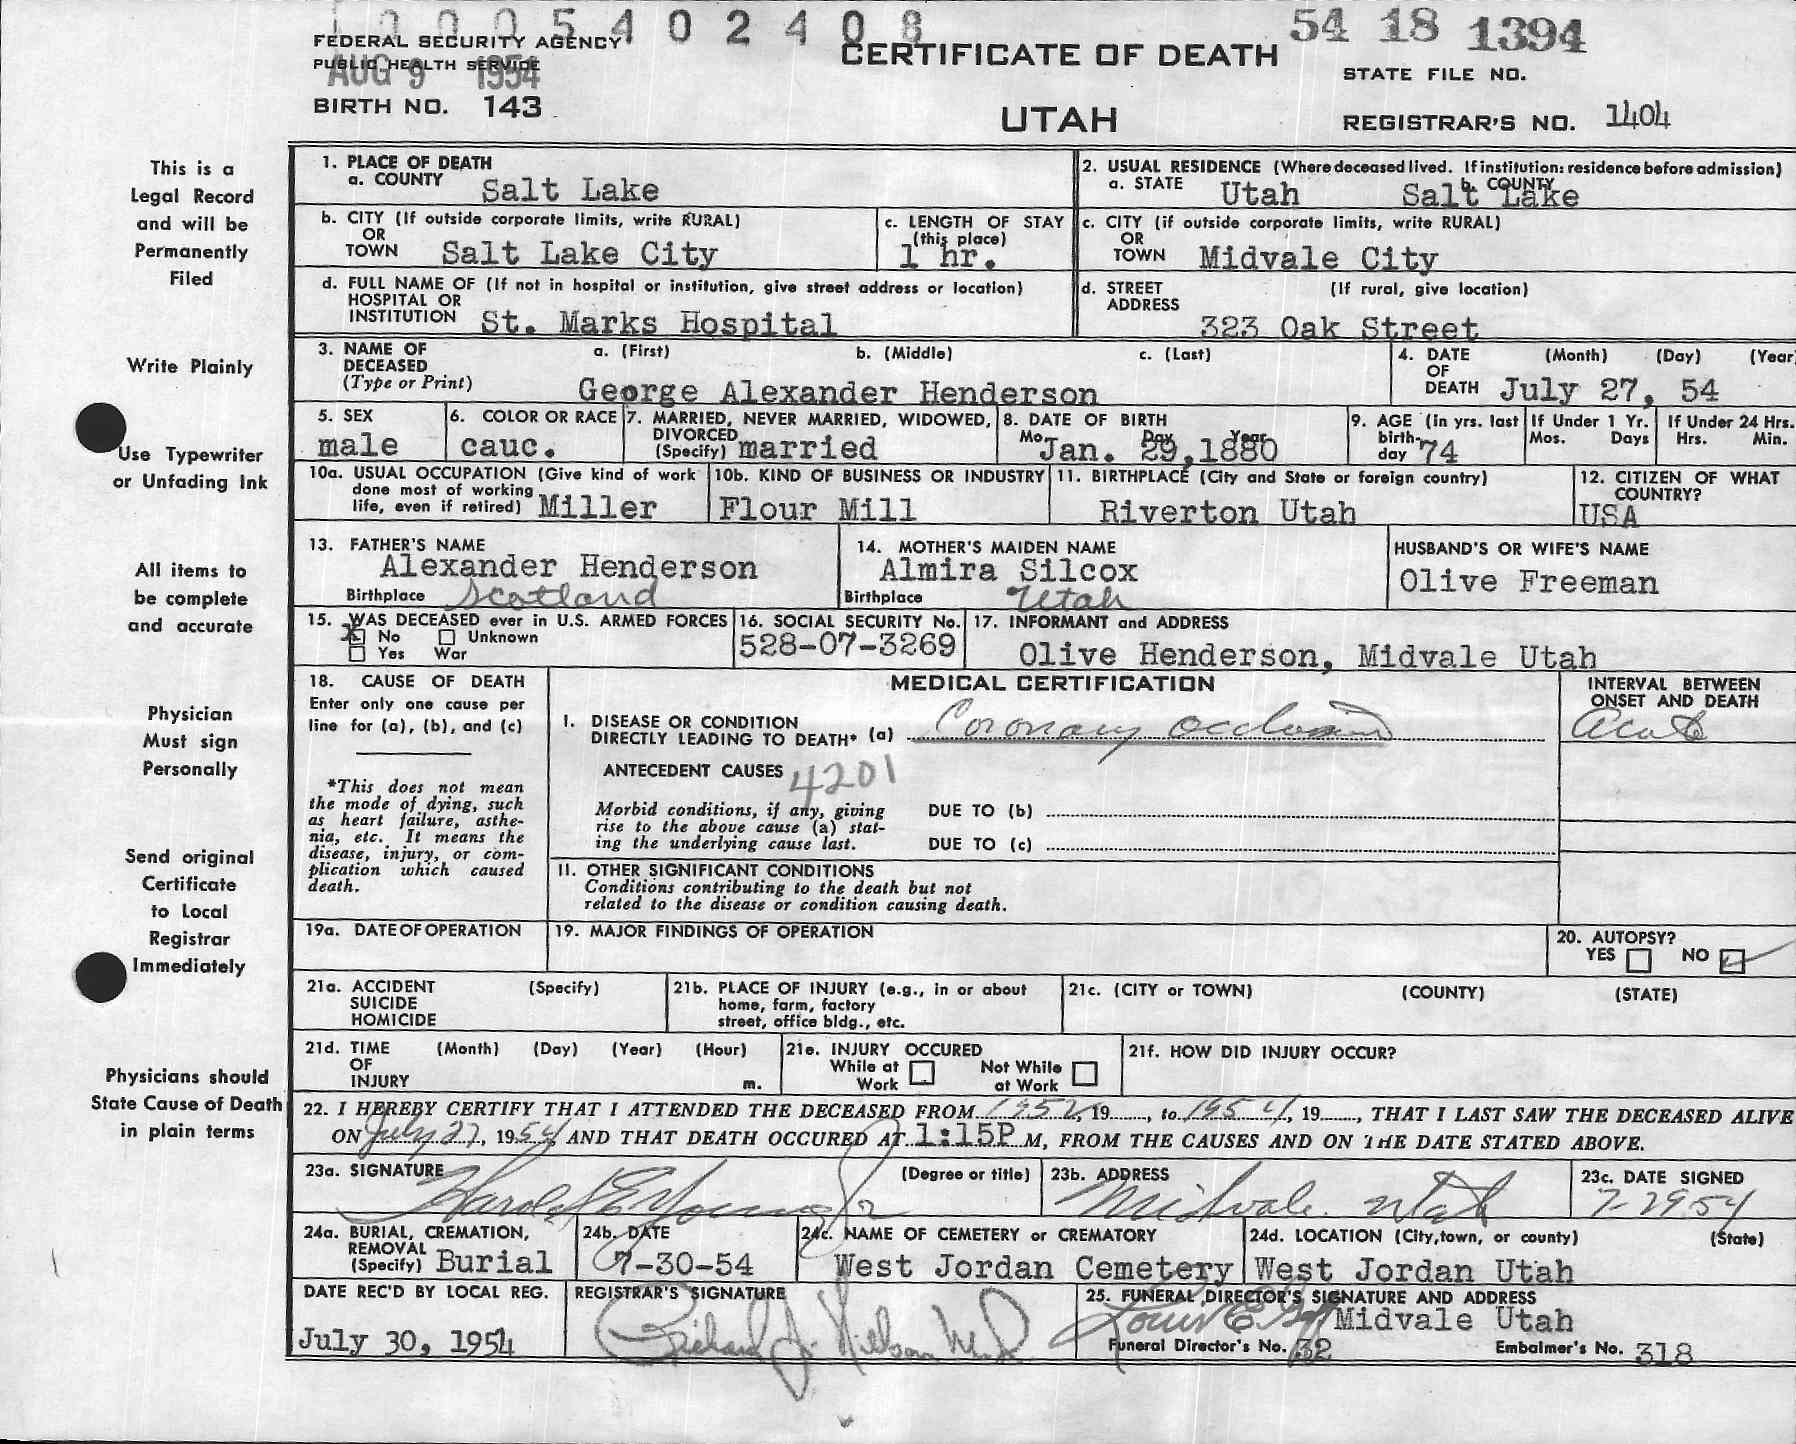 1 0 0 0 5 4 0 2 4 0 8
54 18 1394
FEDERAL SECURITY AGENCY
PUBLIC HEALTH SERVICE
AUG 9 1954
CERTIFICATE OF DEATH
STATE FILE NO.
BIRTH NO. 143
UTAH
REGISTRAR'S NO. 1404
This is a
Legal Record
and will be
Permanently
Filed
Write Plainly
Use Typewriter
or Unfading Ink
All items to
be complete
and accurate
Physician
Must sign
Personally
Send original
Certificate
to Local
Registrar
Immediately
Physicians should
State Cause of Death
in plain terms
1. PLACE OF DEATH
a. COUNTY Salt Lake
2. USUAL RESIDENCE (Where deceased lived. If institution: residence before admission)
a. STATE Utah b. COUNTY Salt Lake
b. CITY (If outside corporate limits, write RURAL)
OR
TOWN Salt Lake City
c. LENGTH OF STAY
(this place)
1 hr.
c. CITY (if outside corporate limits, write RURAL)
OR
TOWN Midvale City
d. FULL NAME OF (If not in hospital or institution, give street address or location)
HOSPITAL OR
INSTITUTION St. Marks Hospital
d. STREET (If rural, give location)
ADDRESS
323 Oak Street
3. NAME OF a. (First) b. (Middle) c. (Last)
DECEASED
(Type or Print) George Alexander Henderson
4. DATE (Month) (Day) (Year
OF
DEATH July 27, 54
5. SEX
male
6. COLOR OR RACE
cauc.
7. MARRIED, NEVER MARRIED, WIDOWED,
DIVORCED
(Specify) married
8. DATE OF BIRTH
Mo. Day Year
Jan. 29,1880
9. AGE (in yrs. last
birth-
day 74
If Under 1 Yr.
Mos. Days
If Under 24 Hrs.
Hrs. Min.
10a. USUAL OCCUPATION (Give kind of work
done most of working
life, even if retired) Miller
10b. KIND OF BUSINESS OR INDUSTRY
Flour Mill
11. BIRTHPLACE (City and State or foreign country)
Riverton Utah
12. CITIZEN OF WHAT
COUNTRY?
USA
13. FATHER'S NAME
Alexander Henderson
Birthplace Scotland
14. MOTHER'S MAIDEN NAME
Almira Silcox
Birthplace Utah
HUSBAND'S OR WIFE'S NAME
Olive Freeman
15. WAS DECEASED ever in U.S. ARMED FORCES
X No Unknown
Yes War
16. SOCIAL SECURITY No.
528-07-3269
17. INFORMANT and ADDRESS
Olive Henderson, Midvale Utah
18. CAUSE OF DEATH
Enter only one cause per
line for (a), (b), and (c)
*This does not mean
the mode of dying, such
as heart failure, asthe-
nia, etc. It means the
disease, injury, or com-
plication which caused
death.
MEDICAL CERTIFICATION
INTERVAL BETWEEN
ONSET AND DEATH
I. DISEASE OR CONDITION
DIRECTLY LEADING TO DEATH* (a) Coronary occlusion
acute
ANTECEDENT CAUSES 4201
Morbid conditions, if any, giving
rise to the above cause (a) stat-
ing the underlying cause last.
DUE TO (b)
DUE TO (c)
11. OTHER SIGNIFICANT CONDITIONS
Conditions contributing to the death but not
related to the disease or condition causing death.
19a. DATE OF OPERATION
19. MAJOR FINDINGS OF OPERATION
20. AUTOPSY?
YES NO
21a. ACCIDENT (Specify)
SUICIDE
HOMICIDE
21b. PLACE OF INJURY (e.g., in or about
home, farm, factory
street, office bldg., etc.
21c. (CITY or TOWN) (COUNTY) (STATE)
21d. TIME (Month) (Day) (Year) (Hour)
OF
INJURY m.
21e. INJURY OCCURED
While at Not While
Work at Work
21f. HOW DID INJURY OCCUR?
22. I HEREBY CERTIFY THAT I ATTENDED THE DECEASED FROM 1952, 19, to 1954, 19, THAT I LAST SAW THE DECEASED ALIVE
ON July 27, 1954 AND THAT DEATH OCCURED AT 1:15P M, FROM THE CAUSES AND ON THE DATE STATED ABOVE.
23a. SIGNATURE (Degree or title)
Harold E Young Jr
23b. ADDRESS
Midvale Utah
23c. DATE SIGNED
7-29 54
24a. BURIAL, CREMATION,
REMOVAL
(Specify) Burial
24b. DATE
7-30-54
24c. NAME OF CEMETERY or CREMATORY
West Jordan Cemetery
24d. LOCATION (City, town, or county) (State)
West Jordan Utah
DATE REC'D BY LOCAL REG.
July 30, 1954
REGISTRAR'S SIGNATURE
Richard J. Nielson M.D.
25. FUNERAL DIRECTOR'S SIGNATURE AND ADDRESS
Louis E. Midvale Utah
Funeral Director's No. 32 Embalmer's No. 318